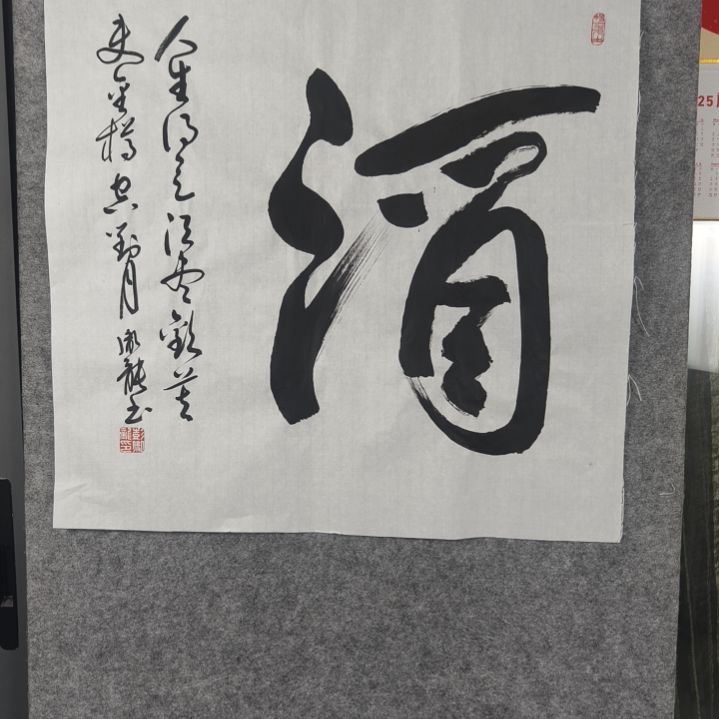 酒
人生得意须尽欢莫
使金樽空对月
25